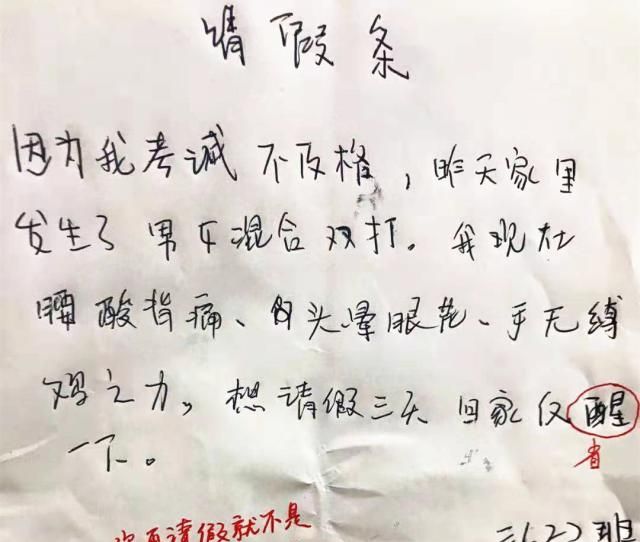 请假条
因为我考诚不及格，昨天家里
发生了男女混合双打。我现在
腰酸背痛、头晕眼花、手无缚
鸡之力。想请假三天回家反醒
省
一下。
再请假就不是
三(2)班